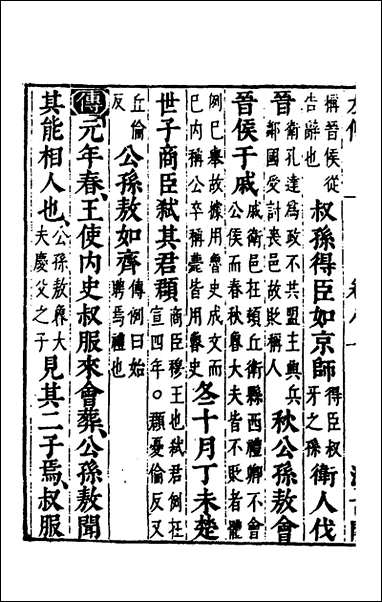 稱晉侯從告辭也叔孫得臣如京師得臣叔牙之孫衛人伐
晉衛孔達爲政不共盟主興兵鄰國受討喪邑故貶稱人秋公孫敖會
晉侯于戚戚衛邑在頓丘衛縣西禮卿不會公侯而春秋魯大夫皆不貶者體
例已舉故據用魯史成文而已內稱公卒稱薨皆用魯史冬十月丁未楚
世子商臣弒其君頵商臣穆王也弒君例在宣四年○頵憂倫反又
丘倫反公孫敖如齊傳例曰始聘焉禮也
傳元年春、王使內史叔服來會葬、公孫敖聞
其能相人也、公孫敖魯大夫慶父之子見其二子焉、叔服